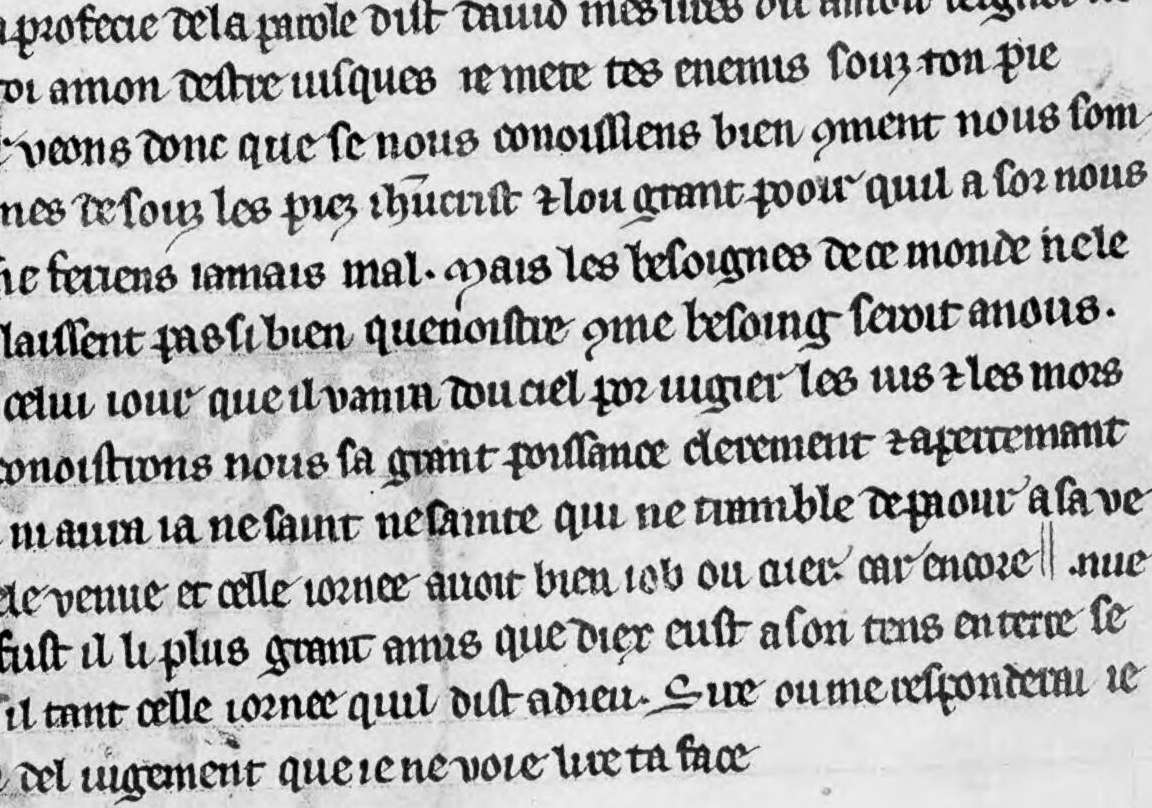 profecie de la parole dist dauid mes sires ou
toi a mon destre iusques ie mete tes enemis souz ton pie
veons donc que se nous conoissiens bien ꝯment nous som
mes desouz les piez ih̄ucrist ⁊ lou grant pooir quil a sor nous
ne feriens iamais mal. Mais les besoignes de ce monde ne le
laissent pas si bien quenoistre ꝯme besoing seroit a nous.
celui iour que il vanra dou ciel por iugier les uis ⁊ les mors
conoistrons nous sa grant poissance clerement ⁊ apertemant
ni aura ia ne saint ne sainte qui ne tramble de paour a sa ve
cele venue et celle iornee auoit bien iob ou cuer. car encore || .nue
fust il li plus grant amis que diex eust a son tens en terre se
il tant celle iornee quil dist a dieu. Sire ou me responderai ie
del iugement que ie ne voie lire ta face